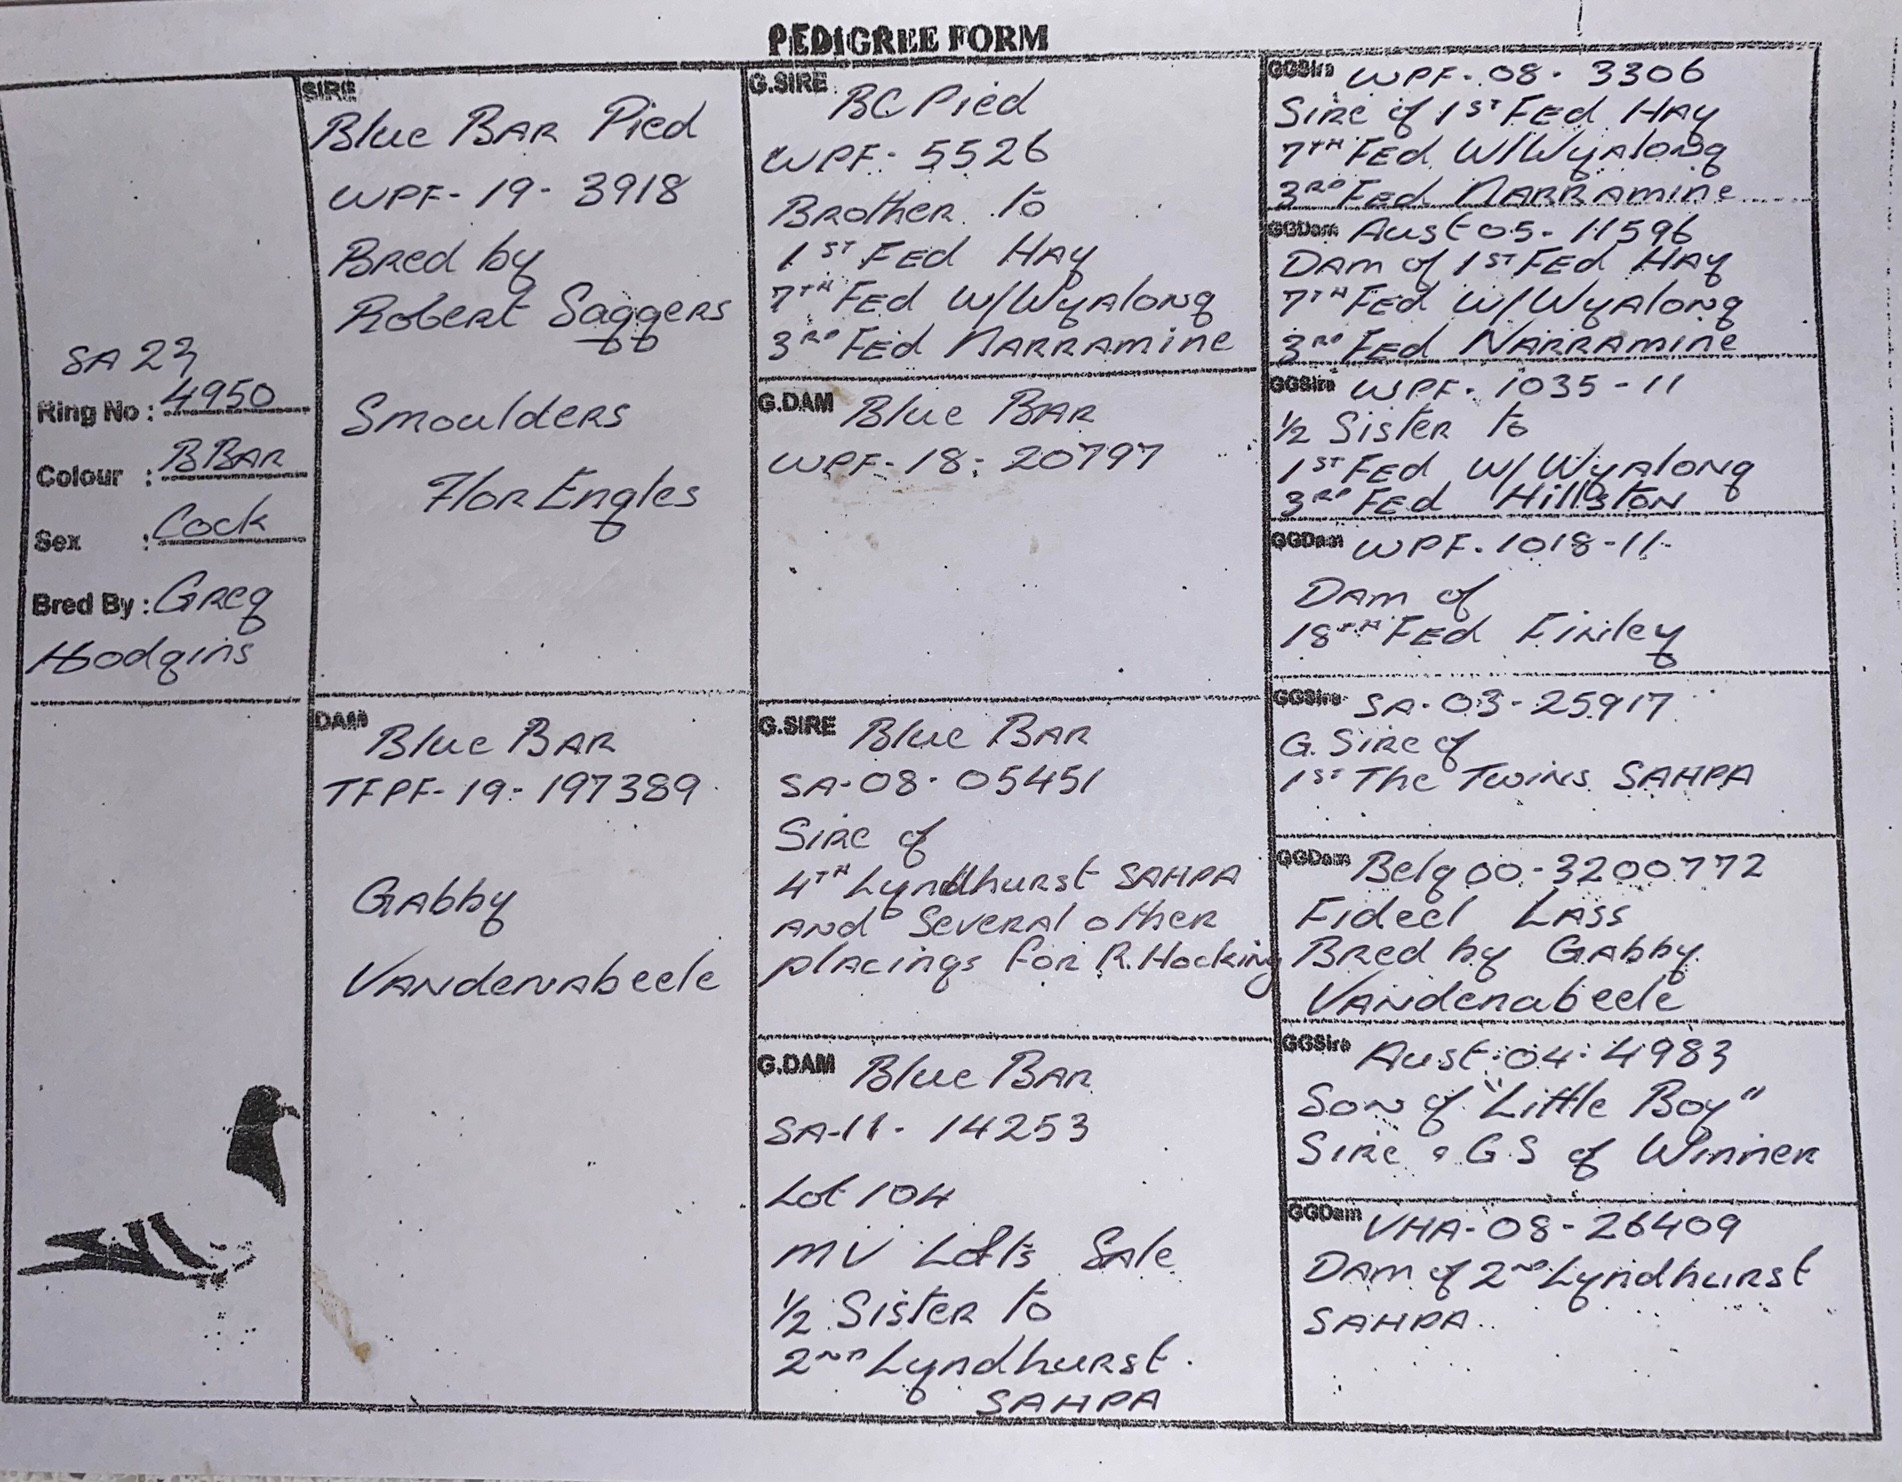 PEDIGREE FORM
SA 23
Ring No : 4950
Colour : BBAR
Sex : Cock
Bred By : Greg
Hodgins
SIRE
Blue BAR Pied
WPF- 19- 3918
Bred by
Robert Saggers
Smoulders
Flor Engles
DAM
Blue BAR
TFPF- 19- 197389
Gabby
Vandenabeele
G.SIRE
BC Pied
WPF- 5526
Brother to
1ST FED HAY
7TH FED W/Wyalong
3RD FED NARRAMINE
G.DAM Blue BAR
WPF-18- 20797
G.SIRE Blue BAR
SA-08- 05451
Sire of
4TH Lyndhurst SAHPA
and several other
placings for R. Hocking
G.DAM Blue BAR
SA-11- 14253
Lot 104
MV Lofts Sale
1/2 Sister to
2ND Lyndhurst.
SAHPA
GGSire WPF- 08- 3306
Sire of 1ST FED HAY
7TH FED W/Wyalong
3RD FED NARRAMINE
GGDam Aust 05- 11596
DAM of 1ST FED HAY
7TH FED W/Wyalong
3RD FED NARRAMINE
GGSire WPF- 1035-11
1/2 Sister to
1ST FED W/Wyalong
3RD FED Hillston
GGDam WPF- 1018-11
Dam of
18TH FED Finley
GGSire SA-03-25917
G. Sire of
1ST The Twins SAHPA
GGDam Belg 00-3200772
Fideel Lass
Bred by Gabby
Vandenabeele
GGSire Aust-04-4983
Son of "Little Boy"
Sire & G.S of Winner
GGDam VHA-08-26409
Dam of 2ND Lyndhurst
SAHPA